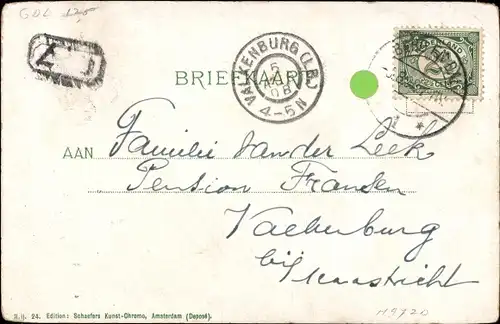 GDL 125
VALKENBURG (LB.)
5
08
4-5N
BRIEFKAART
AAN Familie van der Leek
Pension Fransen
Valkenburg
bij Maastricht
24. Edition: Schaefers Kunst-Chromo, Amsterdam (Deposé).
M9720